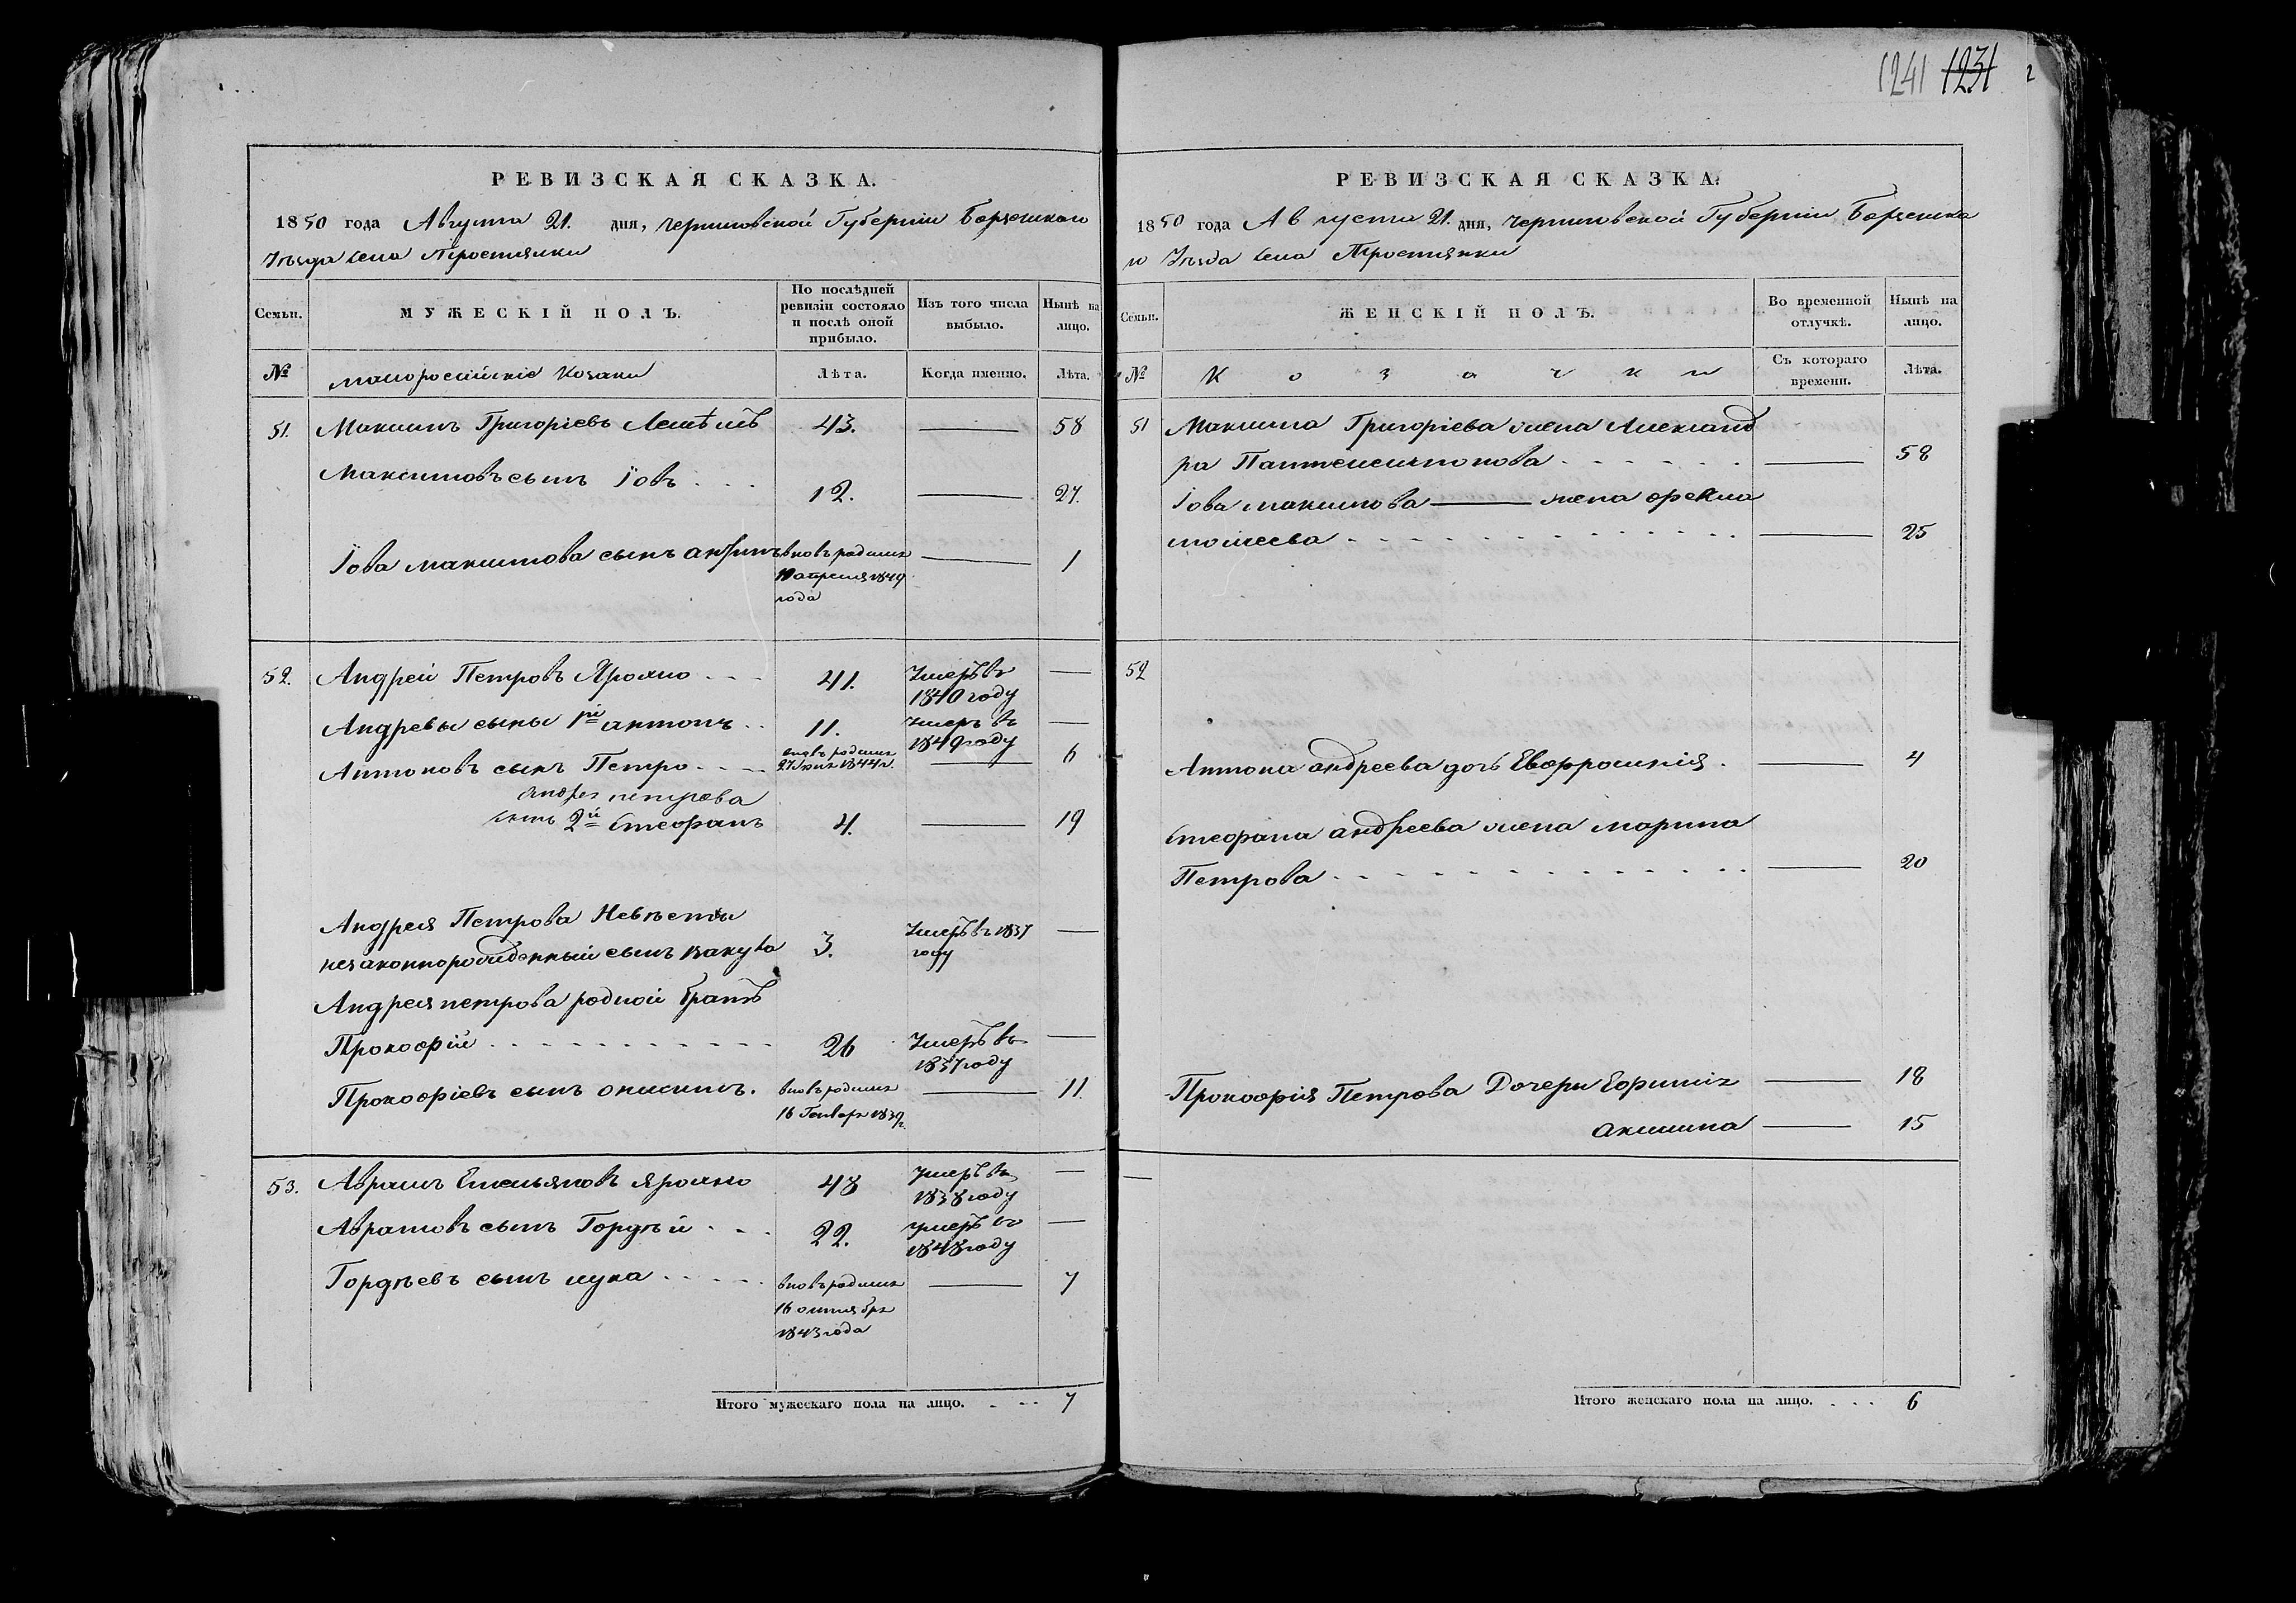 1241 1231 2
РЕВИЗСКАЯ СКАЗКА.
1850 года Августа 21. дня, Черниговской Губерніи Борзенскаго
Уѣзда села Тростянки
Семьи.
МУЖЕСКІЙ ПОЛЪ.
По послѣдней
ревизіи состояло
и послѣ оной
прибыло.
Изъ того числа
выбыло.
Нынѣ на
лицо.
№
малоросійскіе козаки
Лѣта.
Когда именно.
Лѣта.
51. Максимъ Григоріевъ 43. 58
Максимовъ сынъ Іовъ 12. 27.
Іова Максимова сынъ вновь родился 1
апреля 1849
года
52. Андрей Петровъ Ярошко 41. Умеръ въ
1840 году
Андреевы сыны 1й антонъ 11. Умеръ въ
1849 году
Антоновъ сынъ Петро вновь родился 6
27 1844 г.
андрея петрова
сынъ 2й Стефанъ 4. 19
Андрея Петрова
незаконнорожденный сынъ вакула 3. Умеръ въ 1837
году
Андрея петрова родной братъ
Прокофій 26 Умеръ въ
1837 году
Прокофіевъ сынъ онисимъ. вновь родился 11.
16 Генваря 1839 г.
53. Аврамъ Емельяновъ Ярошко 48 Умеръ въ
1838 году
Аврамовъ сынъ Гордѣй 22. умеръ въ
1848 году
Гордѣевъ сынъ лука вновь родился 7
16 октября
1843 года
Итого мужескаго пола на лицо. 7
РЕВИЗСКАЯ СКАЗКА.
1850 года Августа 21. дня, Черниговской Губерніи Борзенска
го Уѣзда села Тростянки
Семьи.
ЖЕНСКІЙ ПОЛЪ.
Во временной
отлучкѣ.
Нынѣ на
лицо.
№
Козачки
Съ котораго
времени.
Лѣта.
51 Максима Григоріева жена Александ
ра 58
Іова максимова жена
моисеева 25
52
Антона андреева дочь Евфросинія 4
Стефана андреева жена марина
Петрова 20
Прокофія Петрова Дочери Ефимія 18
акилина 15
Итого женскаго пола на лицо. 6